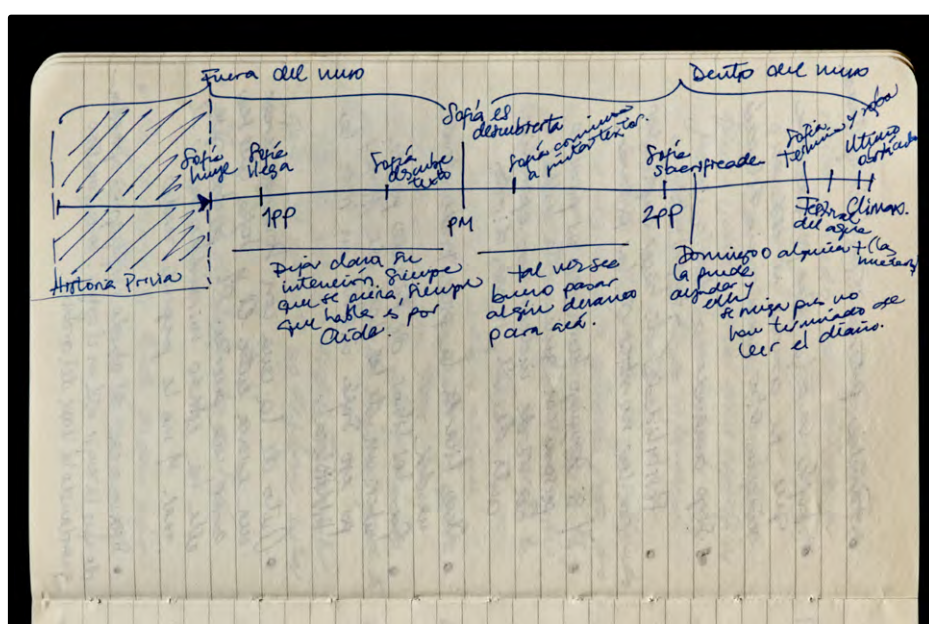 Fuera del muro
Dentro del muro
Sofía es
descubierta
Sofía
huye
Sofía
llega
Sofía
descubre
texto
Sofía comienza
a pintar textos.
Sofía
sacrificada
Sofía
termina y roba
Ultimo
1PP
PM
2PP
Festival
del agua
Climax.
Historia Previa
Dejar clara su
intención. Siempre
que se , siempre
que habla es por
Ovide.
tal vez sea
bueno pasar
algún
para acá.
Domingo o alguien + (la
muerte)
la puede
ayudar y
ella
se niega pues no
han terminado de
leer el diario.